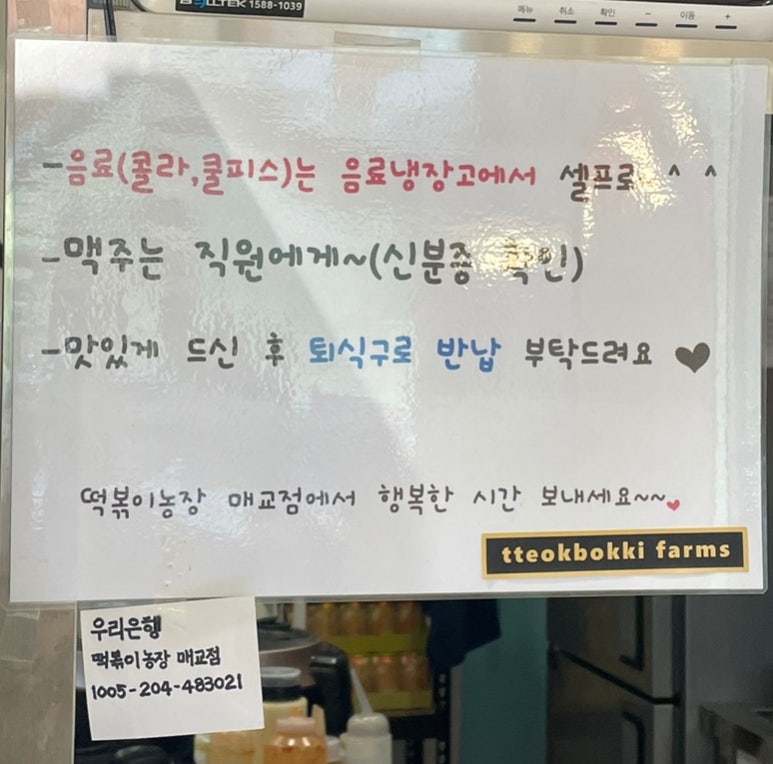 1588-1039
메뉴 취소 확인 - 이동 +
-음료(콜라,쿨피스)는 음료냉장고에서 셀프로 ^ ^
-맥주는 직원에게~(신분증 확인)
-맛있게 드신 후 퇴식구로 반납 부탁드려요 ♥
떡볶이농장 매교점에서 행복한 시간 보내세요~~♥
tteokbokki farms
우리은행
떡볶이농장 매교점
1005-204-483021